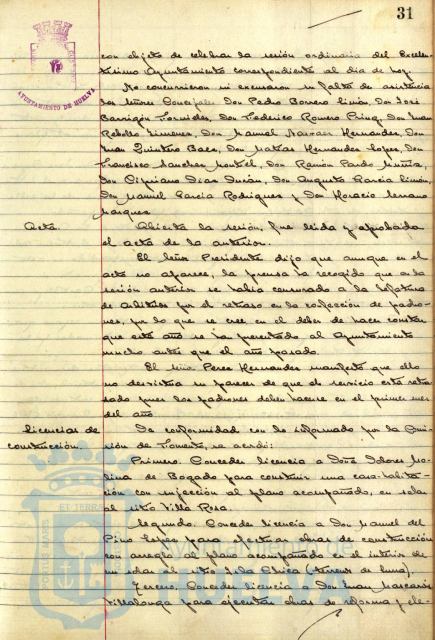 31
AYUNTAMIENTO DE HUELVA
con objeto de celebrar la sesión ordinaria del Excelen-
tísimo Ayuntamiento correspondiente al día de hoy.
No concurrieron ni excusaron su falta de asistencia
los Señores Concejales Don Pedro Borrero Limón, Don José
Barrigón Fornieles, Don Federico Romero Don Juan
Rebollo Jimenez, Don Manuel Navarro Hernandez, Don
Juan Quintero Baez, Don Matias Hernandez Lopez, Don
Francisco Sanchez Don Ramón Pardo
Don Cipriano Diaz Durán, Don Augusto García Limón,
Don Manuel García Rodriguez y Don Horacio Serrano
Marquez.
Acta. Abierta la sesión, fue leida y aprobada
el acta de la anterior.
El Señor Presidente dijo que aunque en el
acta no aparece, la prensa ha recogido que en la
sesión anterior se había censurado a la Jefatura
de Arbitrios por el retraso en la confección de padro-
nes, por lo que se cree en el deber de hacer constar
que este año se ha presentado al Ayuntamiento
mucho antes que el año pasado.
El señor Perez Hernandez manifestó que ello
no desvirtua su parecer de que el servicio está retra-
sado pues los padrones deben hacerse en el primer mes
del año.
Licencias de construcción. De conformidad con lo informado por la Comi-
sión de Fomento, se acordó:
Primero. Conceder licencia a Doña Dolores Mo-
lina de Bogado para construir una casa-habita-
ción con sujeción al plano acompañado, en solar
al sitio Villa Rosa.
Segundo. Conceder licencia a Don Manuel del
Pino Lopez para efectuar obras de construcción
con arreglo al plano acompañado en el interior de
un solar al sitio Isla Chica
Tercero. Conceder licencia a Don Juan Mascarós
Villalonga para ejecutar obras de reforma y ele-